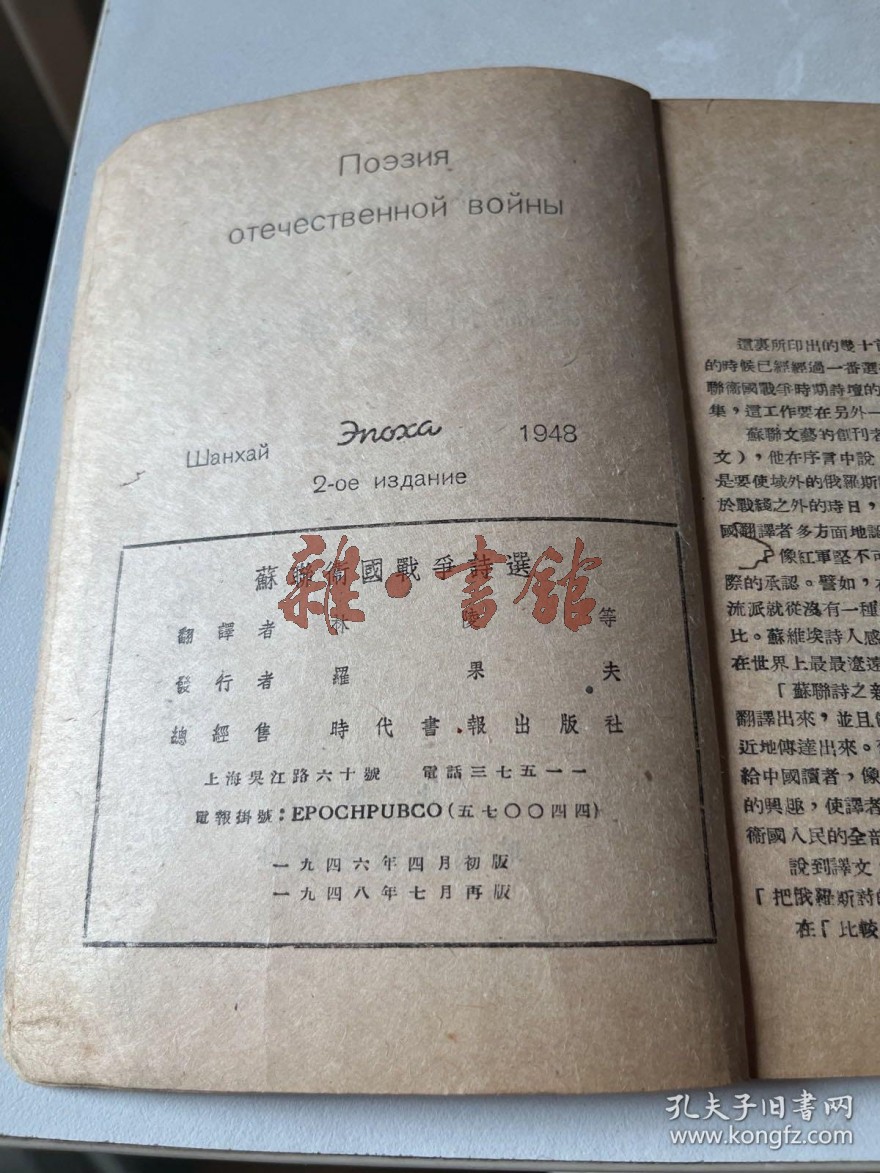 Поэзия
отечественной войны
Шанхай Эпоха 1948
2-ое издание
蘇聯衞國戰爭詩選
翻譯者 林 等
發行者 羅果夫
總經售 時代書報出版社
上海吳江路六十號 電話三七五一一
電報掛號：EPOCHPUBCO（五七〇〇四四）
一九四六年四月初版
一九四八年七月再版
雜·書館
這裏所印出的幾十首
的時候已經經過一番選
聯衞國戰爭時期詩壇的
集，這工作要在另外一
蘇聯文藝的創刊者
文），他在序言中說
是要使域外的俄羅斯
於戰綫之外的時日，
國翻譯者多方面地
像紅軍堅不可
際的承認。譬如，在
流派就從沒有一種
比。蘇維埃詩人感
在世界上最最遼遠
「蘇聯詩之新
翻譯出來，並且
近地傳達出來。
給中國讀者，像
的興趣，使譯者
衞國人民的全部
說到譯文，
「把俄羅斯詩的
在「比較
孔夫子旧书网
www.kongfz.com